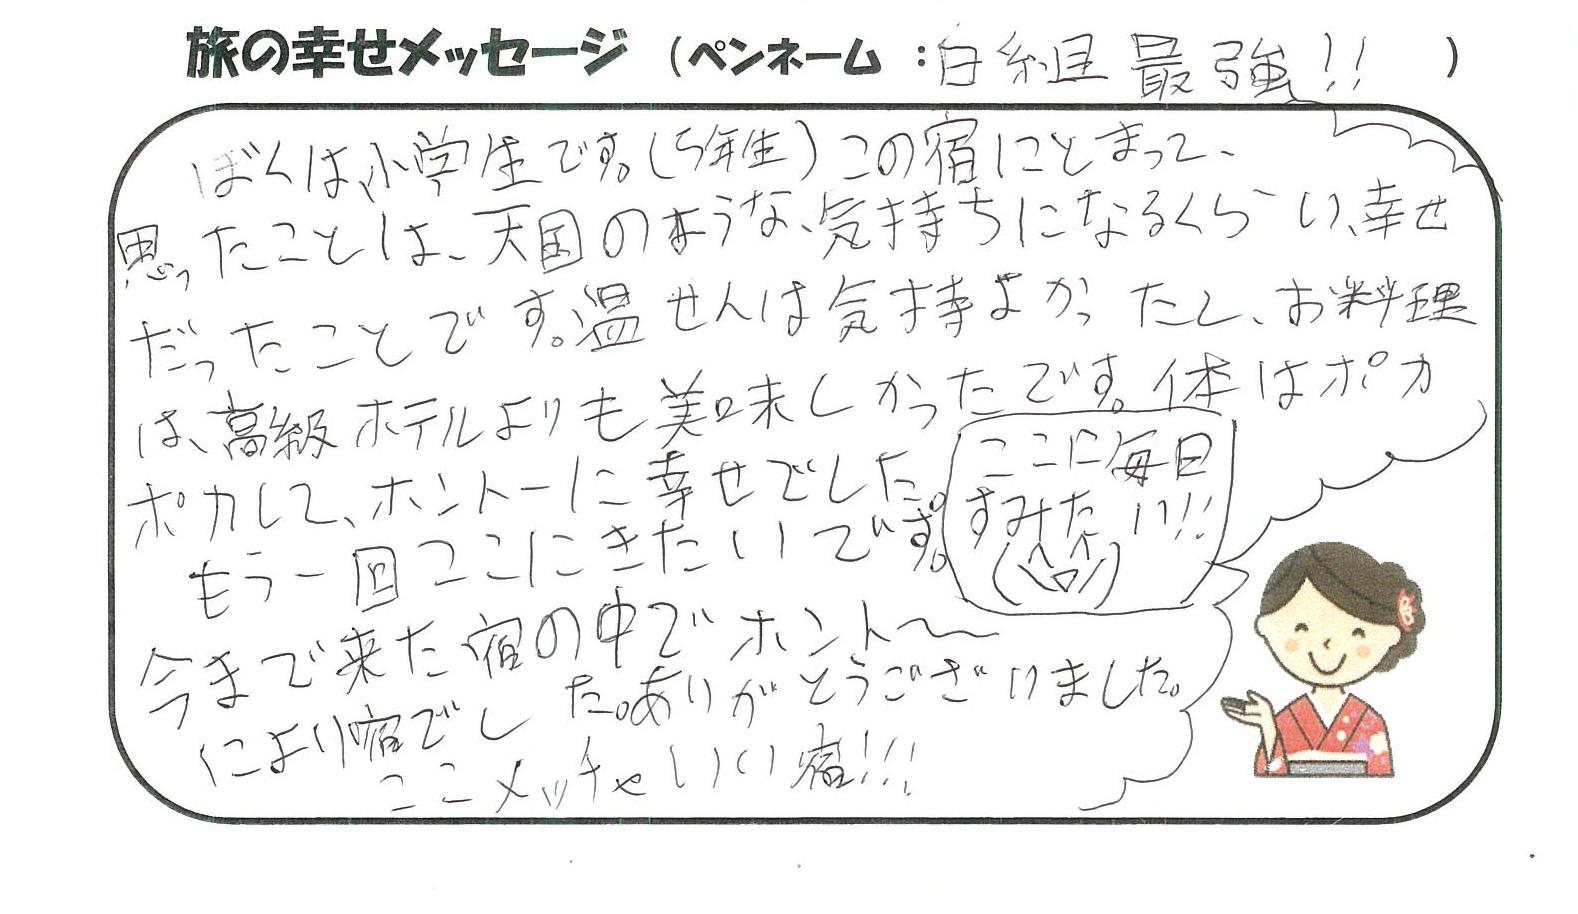 旅の幸せメッセージ （ペンネーム ：白組最強!! ）
ぼくは、小学生です。(5年生)この宿にとまって、
思ったことは、天国のような、気持ちになるくらい、幸せ
だったことです。温せんは気持よかったし、お料理
は、高級ホテルよりも美味しかったです。体はポカ
ポカして、ホントーに幸せでした。
もう一回ここにきたいです。
ここに毎日
すみたい!!
(^ロ^)
今まで来た宿の中でホント〜
によい宿でした。ありがとうございました。
ここメッチャいい宿!!!